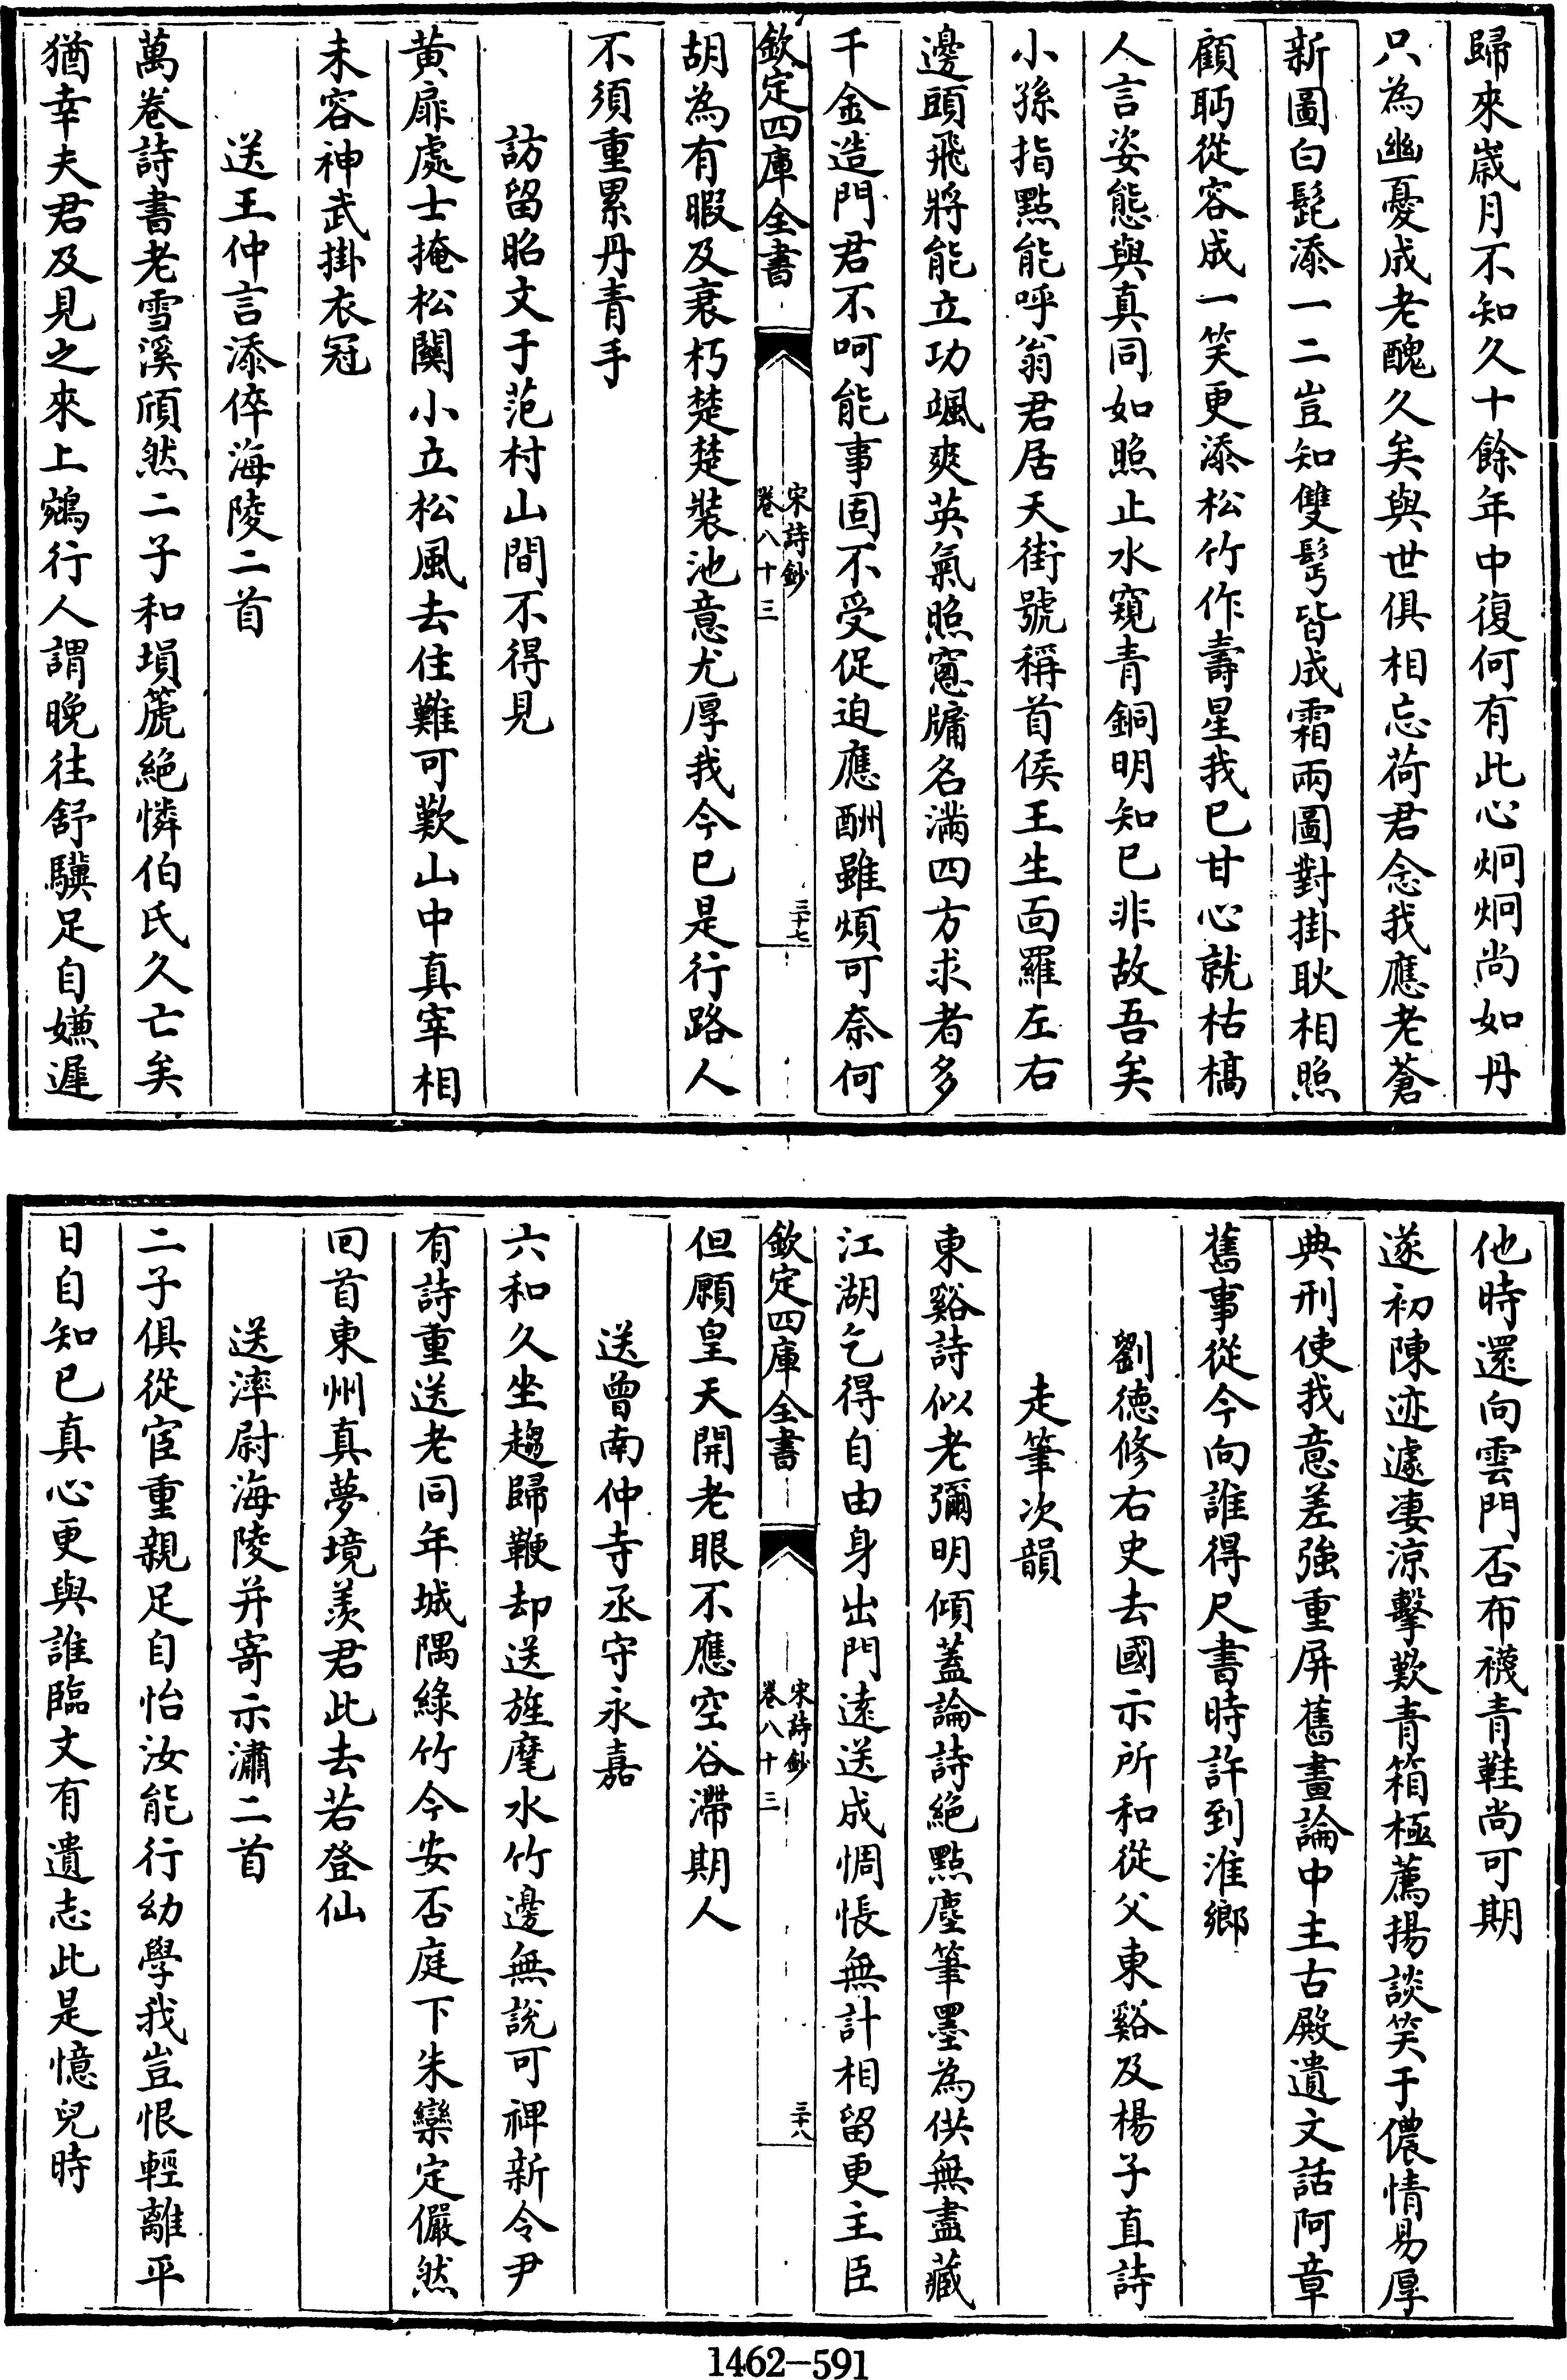 歸來歳月不知久十餘年中復何有此心炯炯尚如丹
只為幽憂成老醜久矣與世俱相忘荷君念我應老蒼
新圖白髭添一二豈知雙鬢皆成霜兩圖對掛耿相照
顧眄從容成一笑更添松竹作壽星我已甘心就枯槁
人言姿態與真同如照止水窺青銅明知已非故吾矣
小孫指點能呼翁君居天街號稱首侯王生面羅左右
邊頭飛將能立功颯爽英氣照窻牗名滿四方求者多
千金造門君不呵能事固不受促迫應酬雖煩可奈何
欽定四庫全書
宋詩鈔
卷八十三
三十七
胡為有暇及衰朽楚楚裝池意尤厚我今已是行路人
不須重累丹青手
訪留昭文于范村山間不得見
黄扉處士掩松關小立松風去住難可歎山中真宰相
未容神武掛衣冠
送王仲言添倅海陵二首
萬卷詩書老雪溪頎然二子和塤箎絕憐伯氏久亡矣
猶幸夫君及見之來上鵷行人謂晚往舒驥足自嫌遲
他時還向雲門否布襪青鞋尚可期
遂初陳迹遽凄涼擊歎青箱極薦揚談笑于儂情易厚
典刑使我意差強重屏舊畫論中主古殿遺文話阿章
舊事從今向誰得尺書時許到淮鄉
劉德修右史去國示所和從父東谿及楊子直詩
走筆次韻
東谿詩似老彌明傾蓋論詩絕點塵筆墨為供無盡藏
江湖乞得自由身出門遠送成惆悵無計相留更主臣
欽定四庫全書
宋詩鈔
卷八十三
三十八
但願皇天開老眼不應空谷滯期人
送曾南仲寺丞守永嘉
六和久坐趨歸鞭却送旌麾水竹邊無說可裨新令尹
有詩重送老同年城隅綠竹今安否庭下朱欒定儼然
回首東州真夢境羨君此去若登仙
送滓尉海陵并寄示潚二首
二子俱從宦重親足自怡汝能行幼學我豈恨輕離平
日自知已真心更與誰臨文有遺志此是憶兒時
1462-591